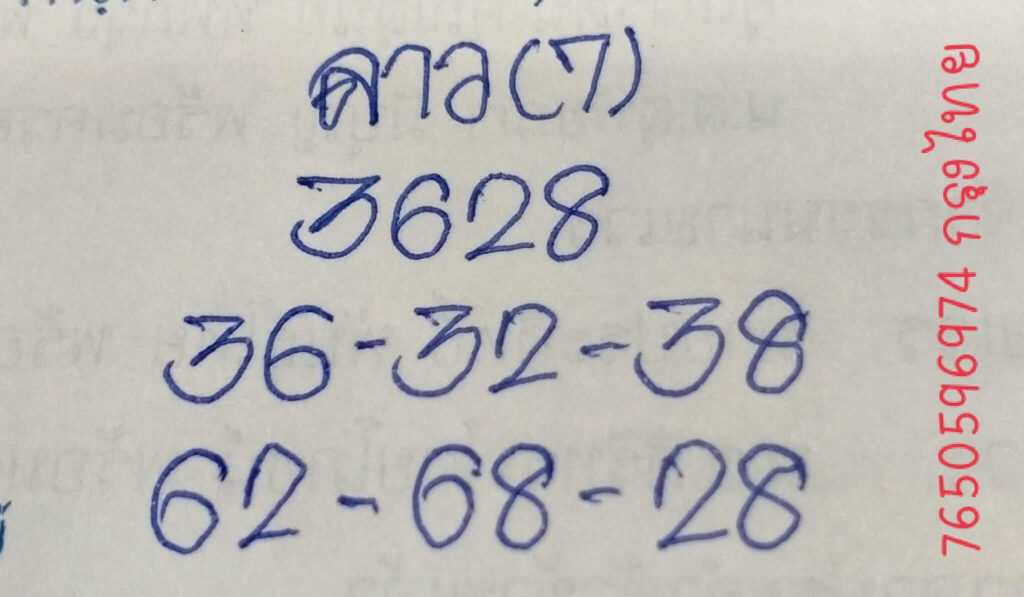 ลาว(7)
3628
36-32-38
62-68-28
7650596974 กรุงไทย